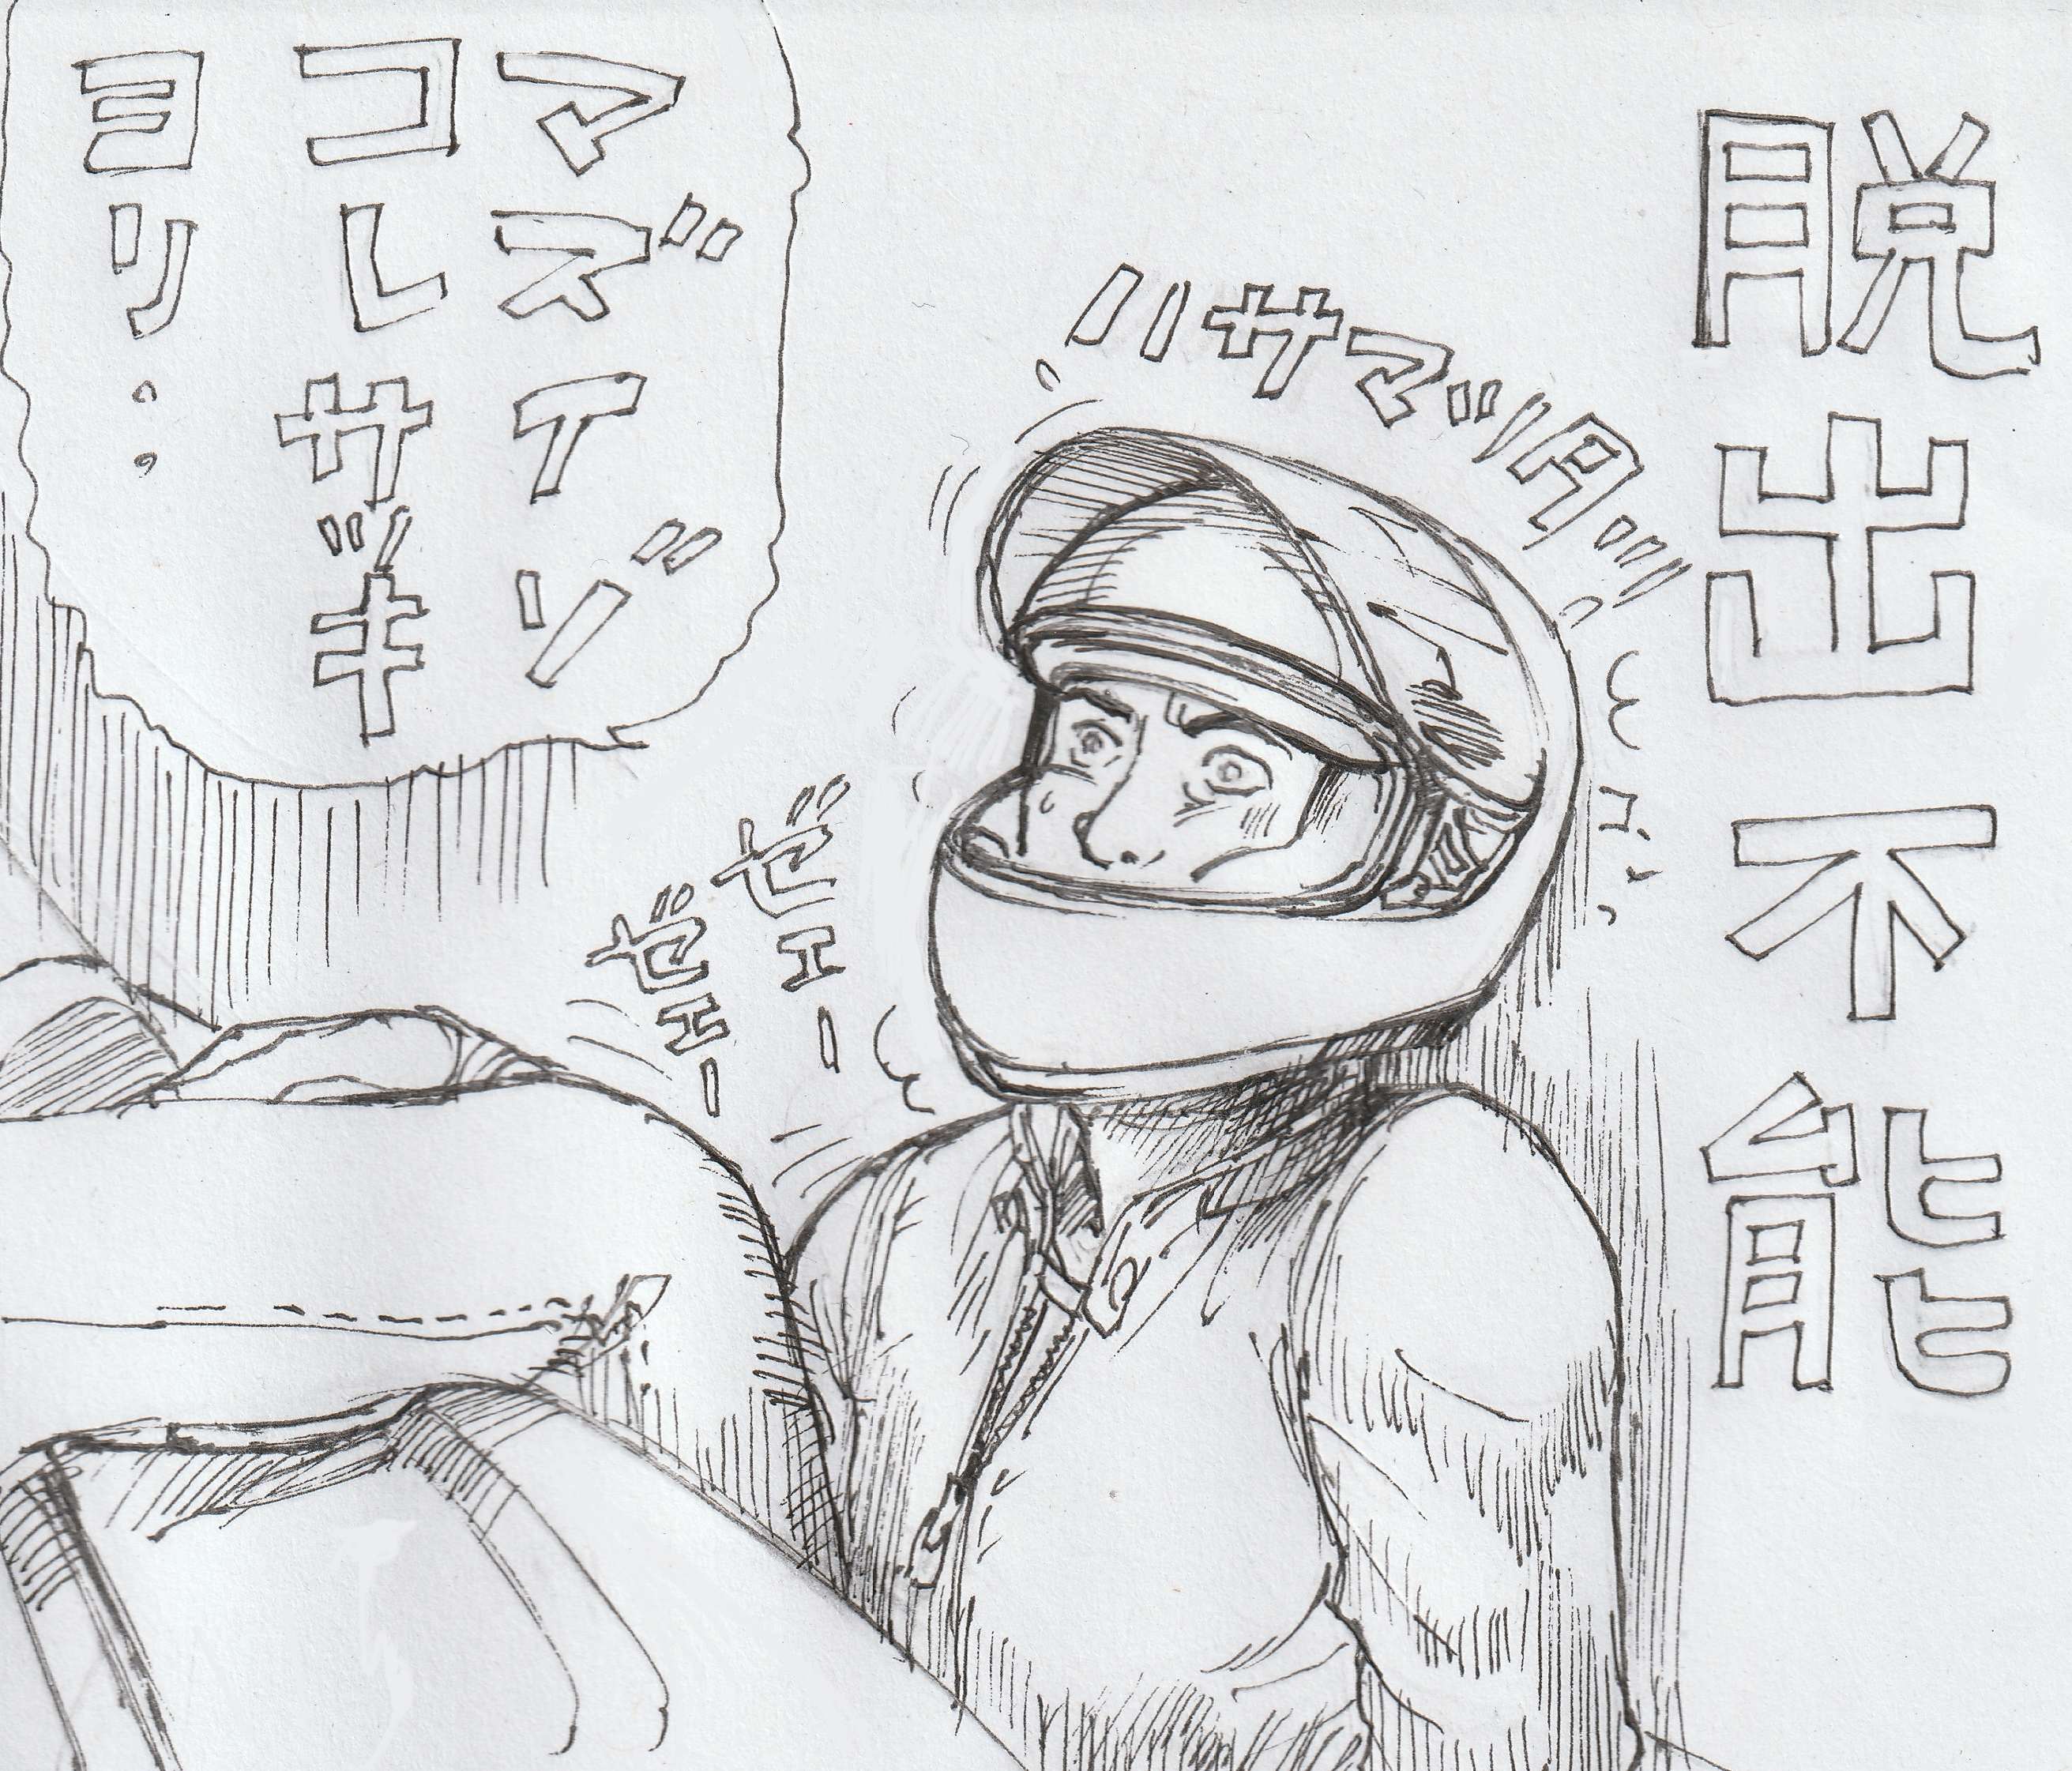 脱出不能
ハサマッタッ
ゼェー
ゼェー
マズイゾ
コレサッキ
ヨリ‥